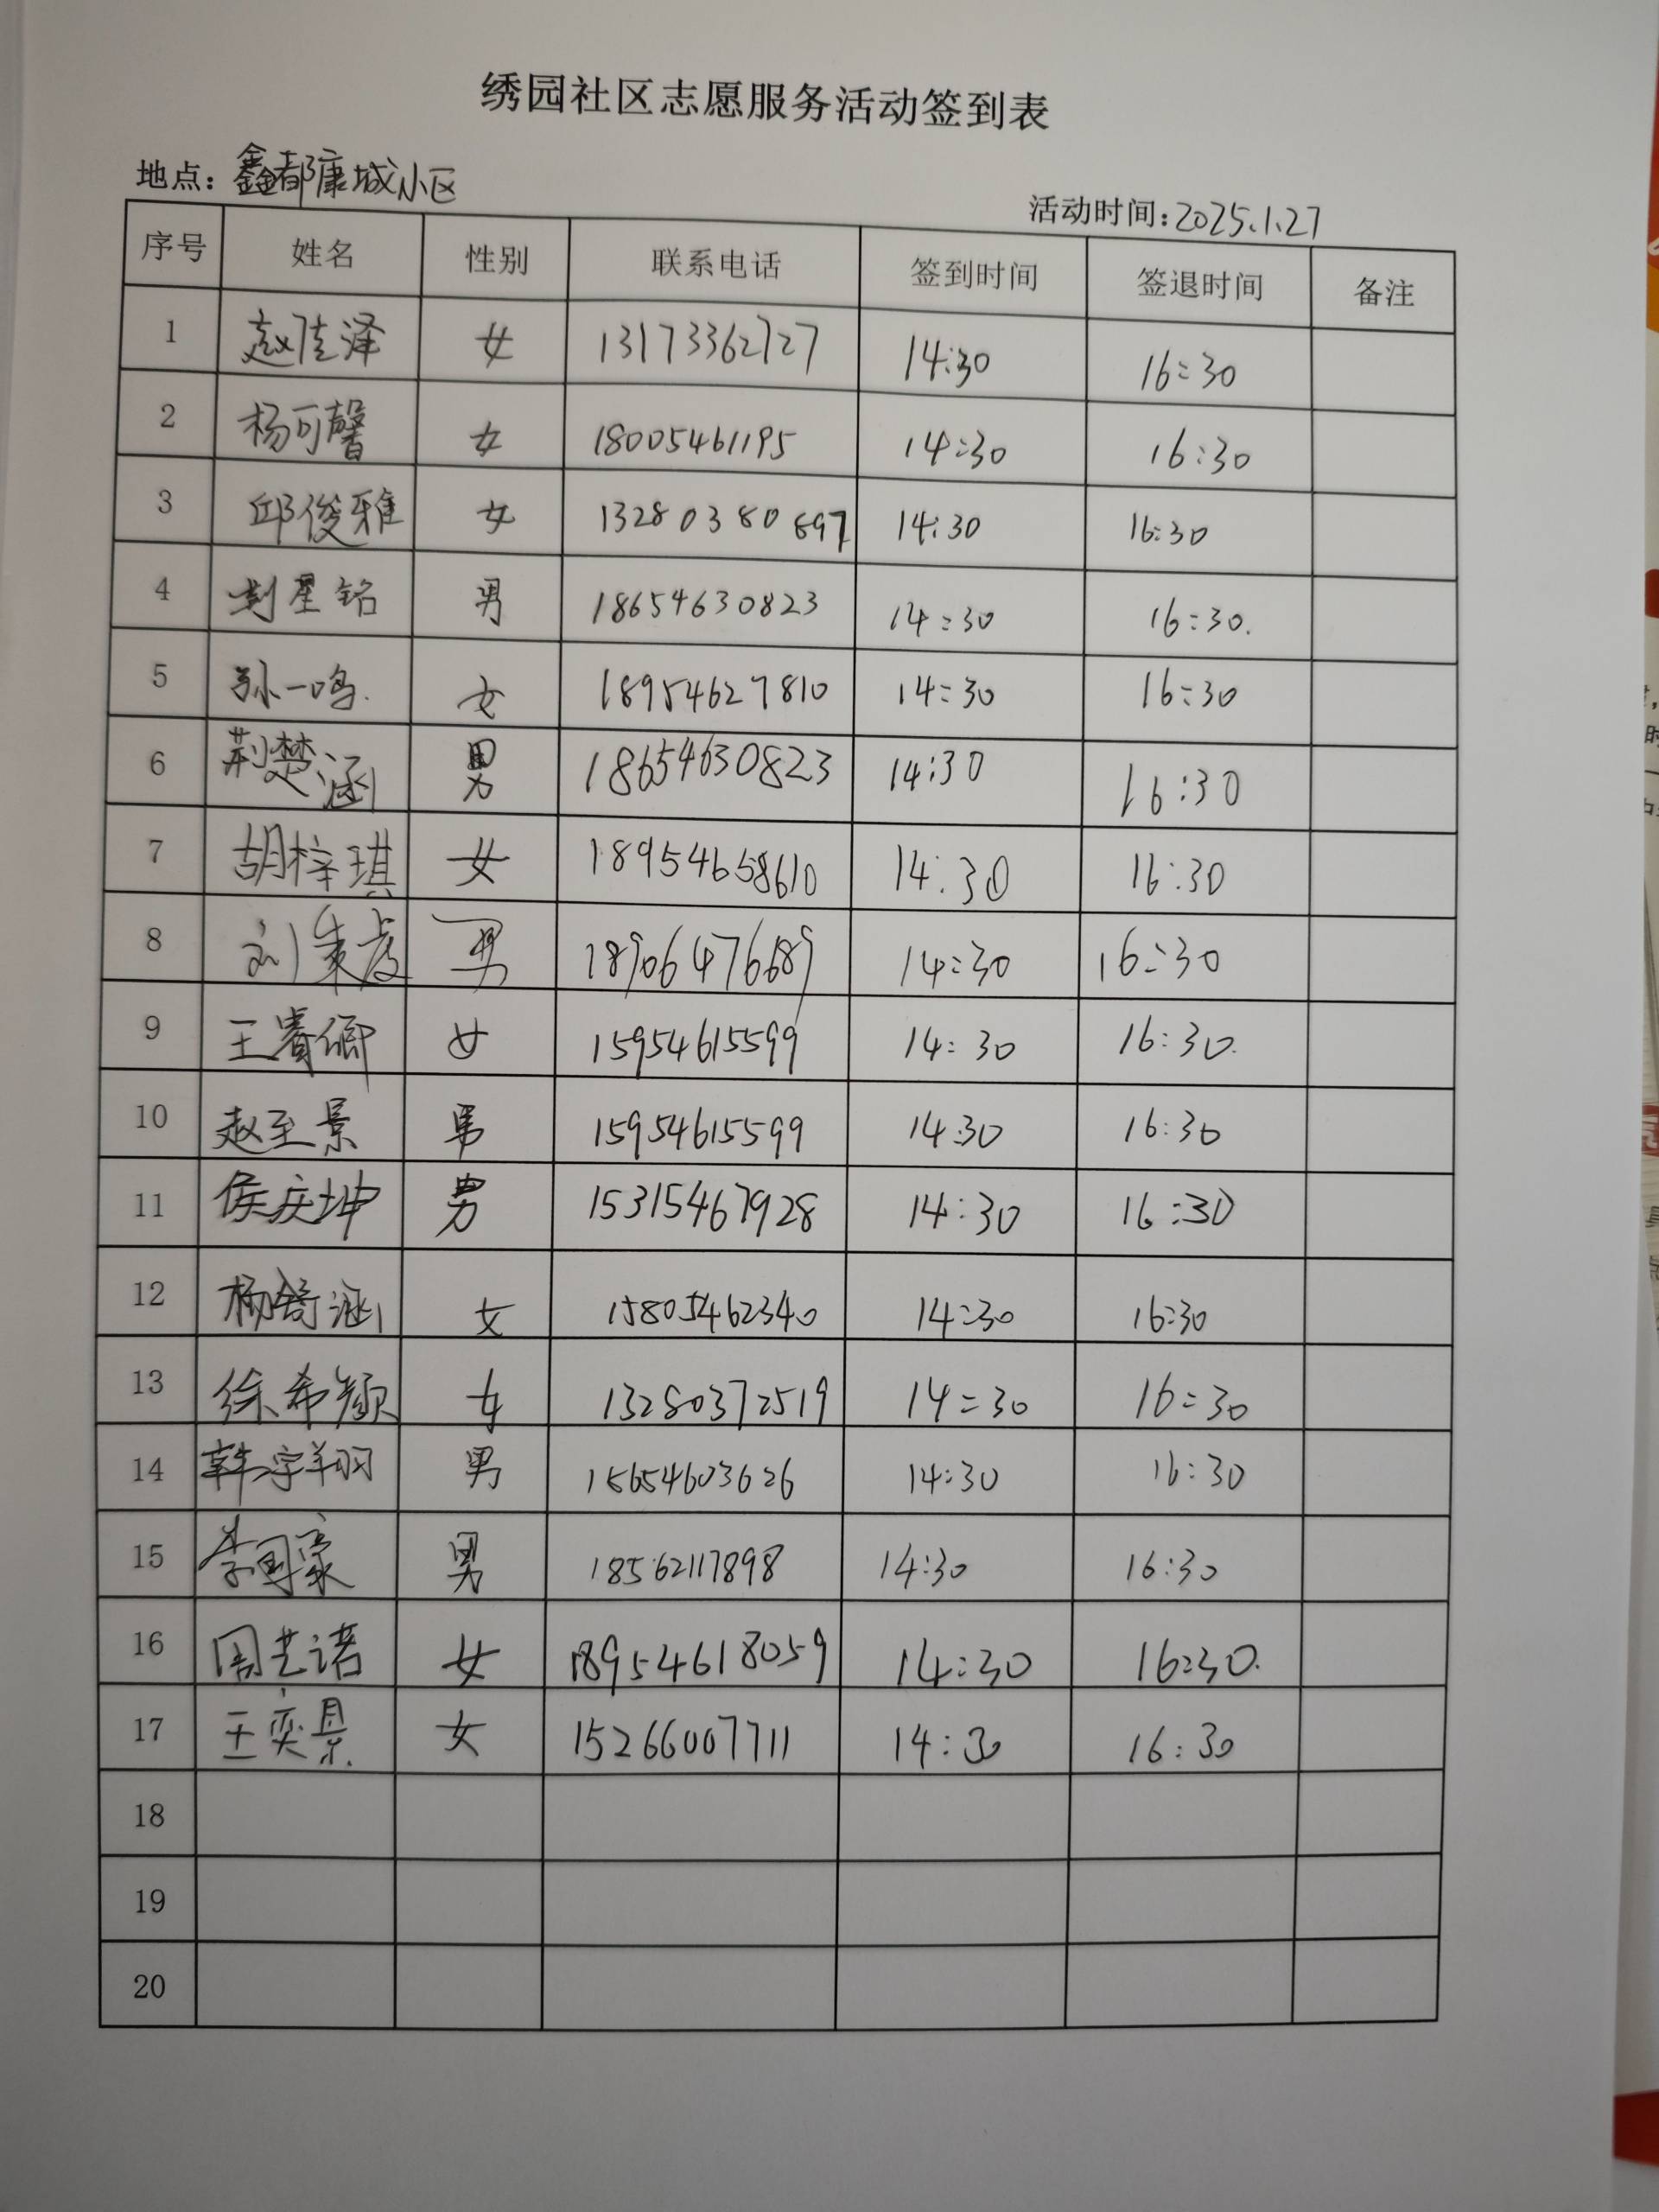 绣园社区志愿服务活动签到表
地点：鑫都康城小区
活动时间：2025.1.27
序号 姓名 性别 联系电话 签到时间 签退时间 备注
1 赵佳泽 女 13173362727 14:30 16:30
2 杨可馨 女 18005461195 14:30 16:30
3 邱俊雅 女 13280380897 14:30 16:30
4 刘星铭 男 18654630823 14:30 16:30.
5 孙一鸣. 女 18954627810 14:30 16:30
6 荆楚涵 男 18654630823 14:30 16:30
7 胡梓琪 女 18954658610 14:30 16:30
8 刘秉虔 男 18906476689 14:30 16:30
9 王睿 女 15954615599 14:30 16:30.
10 赵至景 男 15954615599 14:30 16:30
11 侯庆坤 男 15315467928 14:30 16:30
12 杨舒涵 女 15805462340 14:30 16:30
13 徐希颜 女 13280372519 14:30 16:30
14 韩宇翔 男 15654603626 14:30 16:30
15 李国豪 男 18562117898 14:30 16:30
16 周艺诺 女 18954618059 14:30 16:30.
17 王奕景. 女 15266007711 14:30 16:30
18
19
20